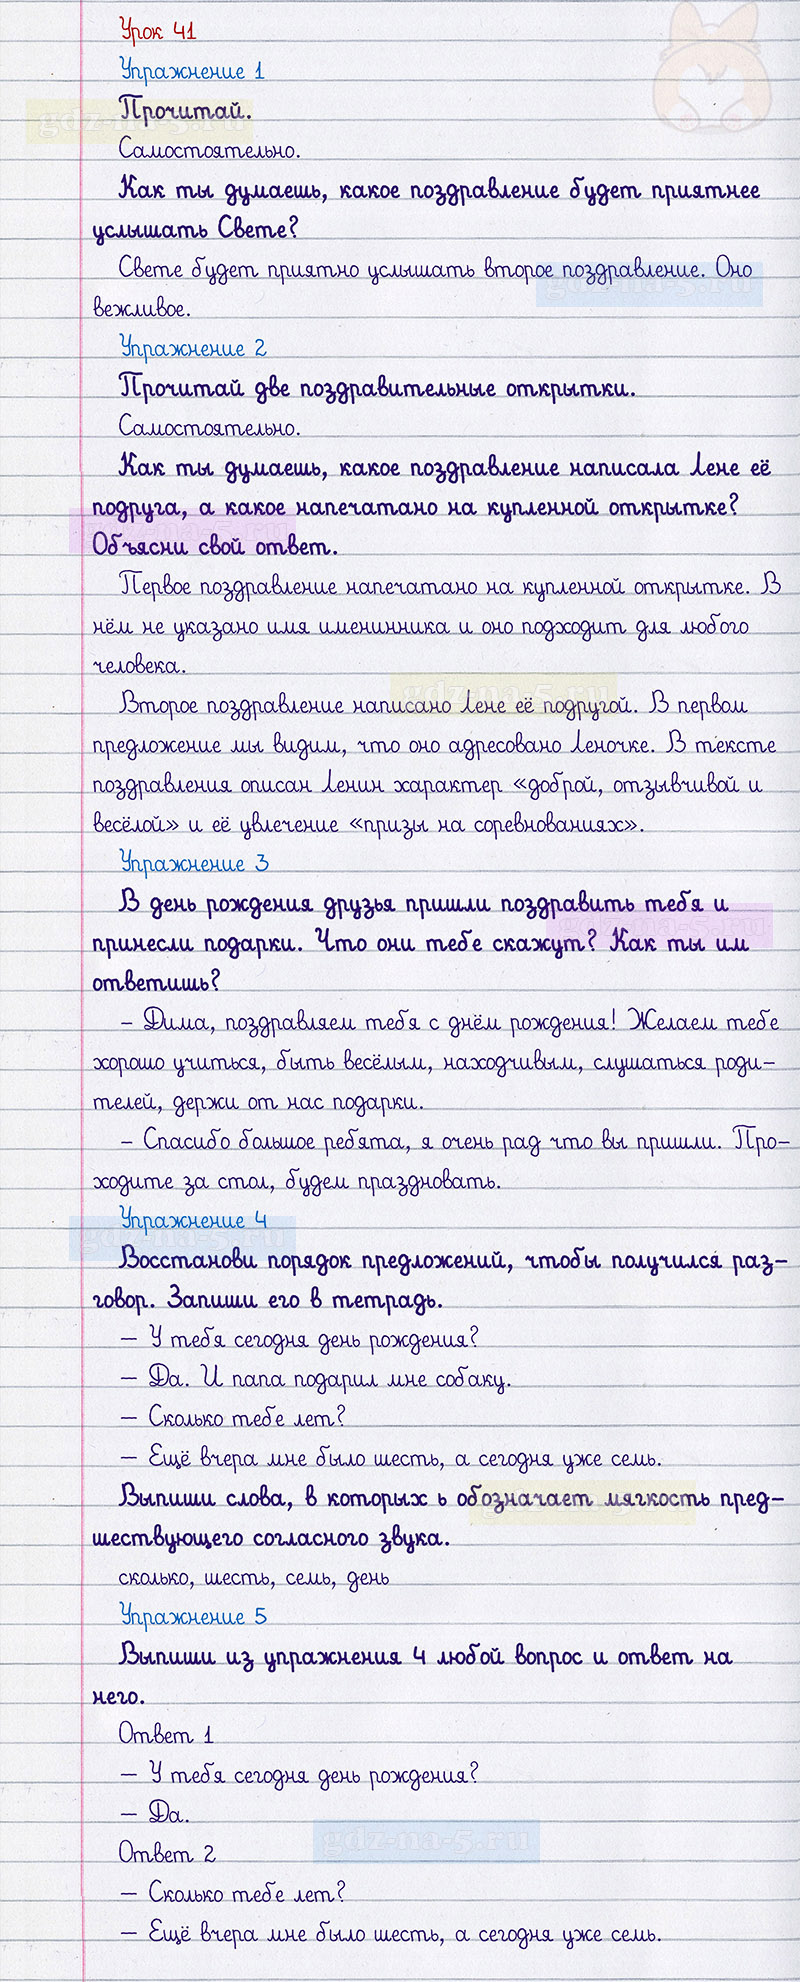 Урок 41
Упражнение 1
Прочитай.
gdz-na-5.ru
Самостоятельно.
Как ты думаешь, какое поздравление будет приятнее
услышать Свете?
Свете будет приятно услышать второе поздравление. Оно
gdz-na-5.ru
вежливое.
Упражнение 2
Прочитай две поздравительные открытки.
Самостоятельно.
Как ты думаешь, какое поздравление написала Лене её
подруга, а какое напечатано на купленной открытке?
gdz-na-5.ru
Объясни свой ответ.
Первое поздравление напечатано на купленной открытке. В
нём не указано имя именинника и оно подходит для любого
человека.
gdz-na-5.ru
Второе поздравление написано Лене её подругой. В первом
предложение мы видим, что оно адресовано Леночке. В тексте
поздравления описан Ленин характер «доброй, отзывчивой и
весёлой» и её увлечение «призы на соревнованиях».
Упражнение 3
В день рождения друзья пришли поздравить тебя и
gdz-na-5.ru
принесли подарки. Что они тебе скажут? Как ты им
ответишь?
– Дима, поздравляем тебя с днём рождения! Желаем тебе
хорошо учиться, быть весёлым, находчивым, слушаться роди–
телей, держи от нас подарки.
– Спасибо большое ребята, я очень рад что вы пришли. Про–
ходите за стол, будем праздновать.
Упражнение 4
gdz-na-5.ru
Восстанови порядок предложений, чтобы получился раз–
говор. Запиши его в тетрадь.
— У тебя сегодня день рождения?
— Да. И папа подарил мне собаку.
— Сколько тебе лет?
— Ещё вчера мне было шесть, а сегодня уже семь.
Выпиши слова, в которых ь обозначает мягкость пред–
gdz-na-5.ru
шествующего согласного звука.
сколько, шесть, семь, день
Упражнение 5
Выпиши из упражнения 4 любой вопрос и ответ на
него.
Ответ 1
— У тебя сегодня день рождения?
— Да.
gdz-na-5.ru
Ответ 2
— Сколько тебе лет?
— Ещё вчера мне было шесть, а сегодня уже семь.